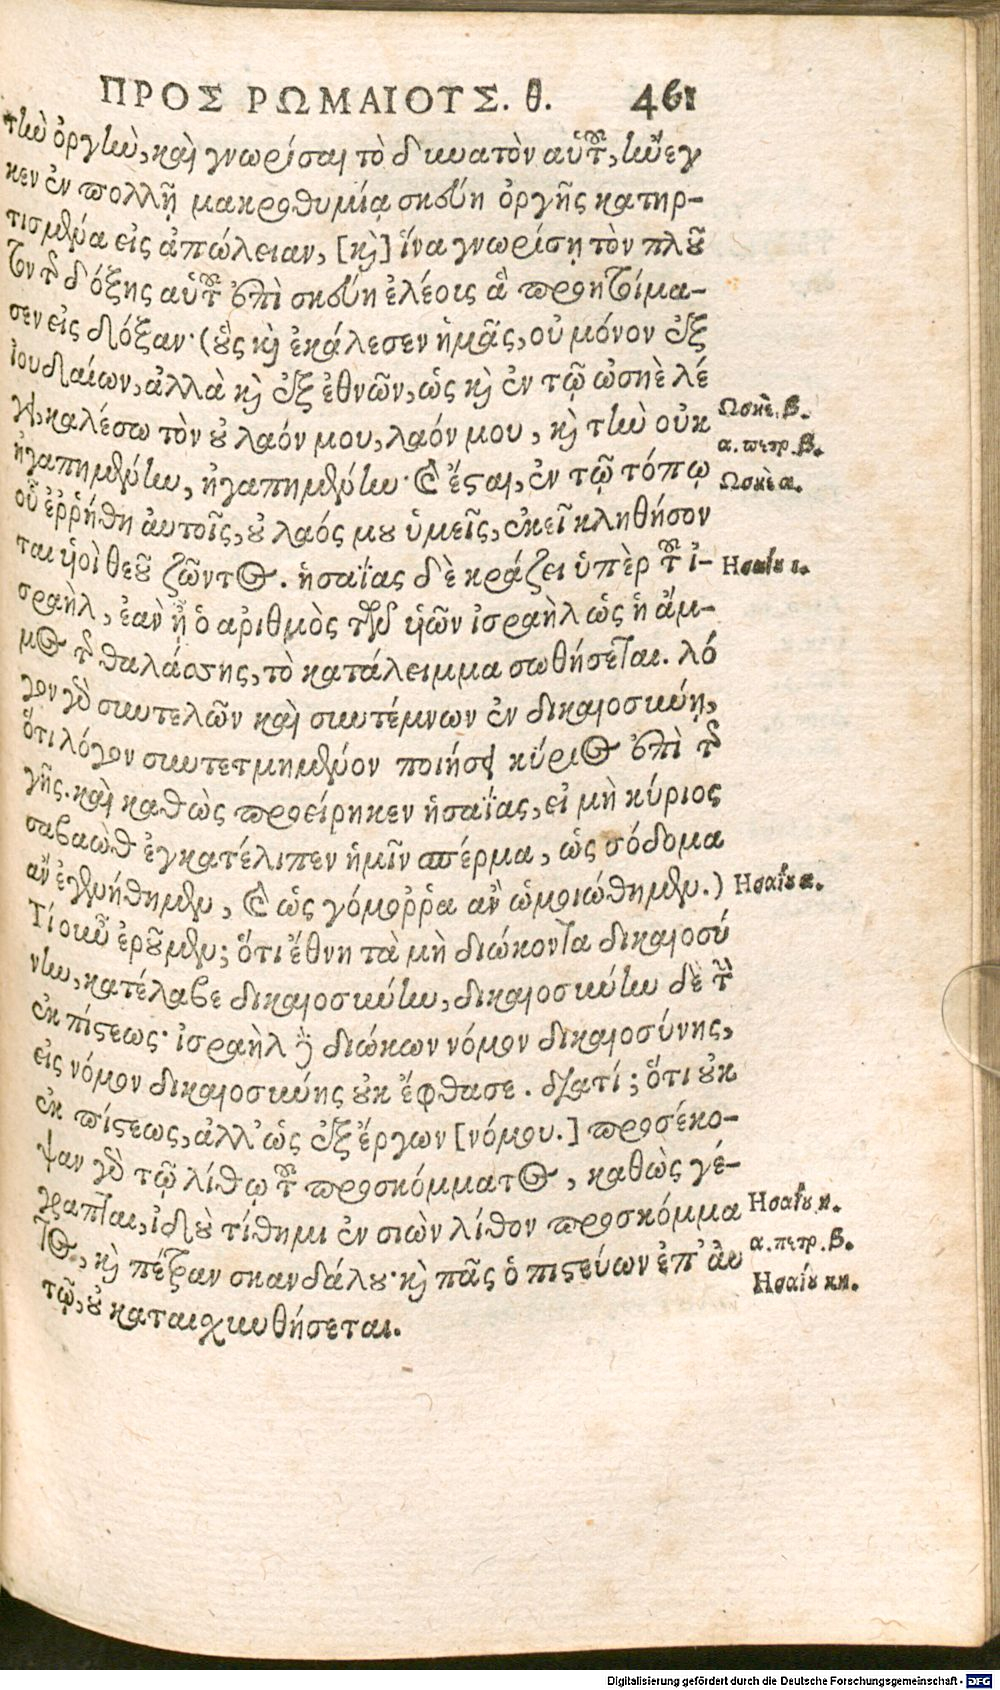 ΠΡΟΣ ΡΩΜΑΙΟΥΣ. θ. 461
τὴν ὀργὴν, καὶ γνωρίσαι τὸ δυνατὸν αὑτοῦ, ἤνεγ
κεν ἐν πολλῇ μακροθυμίᾳ σκεύη ὀργῆς κατηρ-
τισμένα εἰς ἀπώλειαν, [καὶ] ἵνα γνωρίσῃ τὸν πλοῦ
τον τῆς δόξης αὑτοῦ ἐπὶ σκεύη ἐλέους ἃ προητοίμα-
σεν εἰς δόξαν· (οὓς καὶ ἐκάλεσεν ἡμᾶς, οὐ μόνον ἐξ
Ἰουδαίων, ἀλλὰ καὶ ἐξ ἐθνῶν, ὡς καὶ ἐν τῷ ὠσηὲ λέ
γει, καλέσω τὸν οὐ λαόν μου, λαόν μου, καὶ τὴν οὐκ
Ωσηὲ. β.
ἠγαπημένην, ἠγαπημένην· Καὶ ἔσται, ἐν τῷ τόπῳ
α. πετρ. β.
Ωσηὲ α.
οὗ ἐῤῥήθη ἀυτοῖς, οὐ λαός μου ὑμεῖς, ἐκεῖ κληθήσον
ται υἱοὶ θεοῦ ζῶντος. ἡσαΐας δὲ κράζει ὑπὲρ τοῦ ἰ-
Ησαΐου ι.
σραὴλ, ἐὰν ᾖ ὁ αριθμὸς τῶν υἱῶν ἰσραὴλ ὡς ἡ ἄμ-
μος τῆς θαλάσσης, τὸ κατάλειμμα σωθήσεται. λό
γον γὰρ συντελῶν καὶ συντέμνων ἐν δικαιοσύνῃ,
ὅτι λόγον συντετμημένον ποιήσει κύριος ἐπὶ τῆς
γῆς. καὶ καθὼς προείρηκεν ἡσαΐας, εἰ μὴ κύριος
σαβαὼθ ἐγκατέλιπεν ἡμῖν σπέρμα, ὡς σόδομα
ἂν ἐγενήθημεν, Καὶ ὡς γόμοῤῥα αν ὡμοιώθημεν.)
Ησαΐου α.
Τί οὖν ἐροῦμεν; ὅτι ἔθνη τὰ μὴ διώκοντα δικαιοσύ
νην, κατέλαβε δικαιοσύνην, δικαιοσύνην δὲ τὴν
ἐκ πίστεως· ἰσραὴλ δὲ διώκων νόμον δικαιοσύνης,
εἰς νόμον δικαιοσύνης οὐκ ἔφθασε. διατί; ὅτι οὐκ
ἐκ πίστεως, ἀλλ' ὡς ἐξ ἔργων [νόμου.] προσέκο-
ψαν γὰρ τῷ λίθῳ τοῦ προσκόμματος, καθὼς γέ-
γραπται, ἰδοὺ τίθημι ἐν σιὼν λίθον προσκόμμα
Ησαΐου η.
τος, καὶ πέτραν σκανδάλου· καὶ πᾶς ὁ πιστεύων ἐπ' ἀυ
α. πετρ. β.
Ησαΐου κη.
τῷ, οὐ καταισχυνθήσεται.
Digitalisierung gefördert durch die Deutsche Forschungsgemeinschaft - DFG